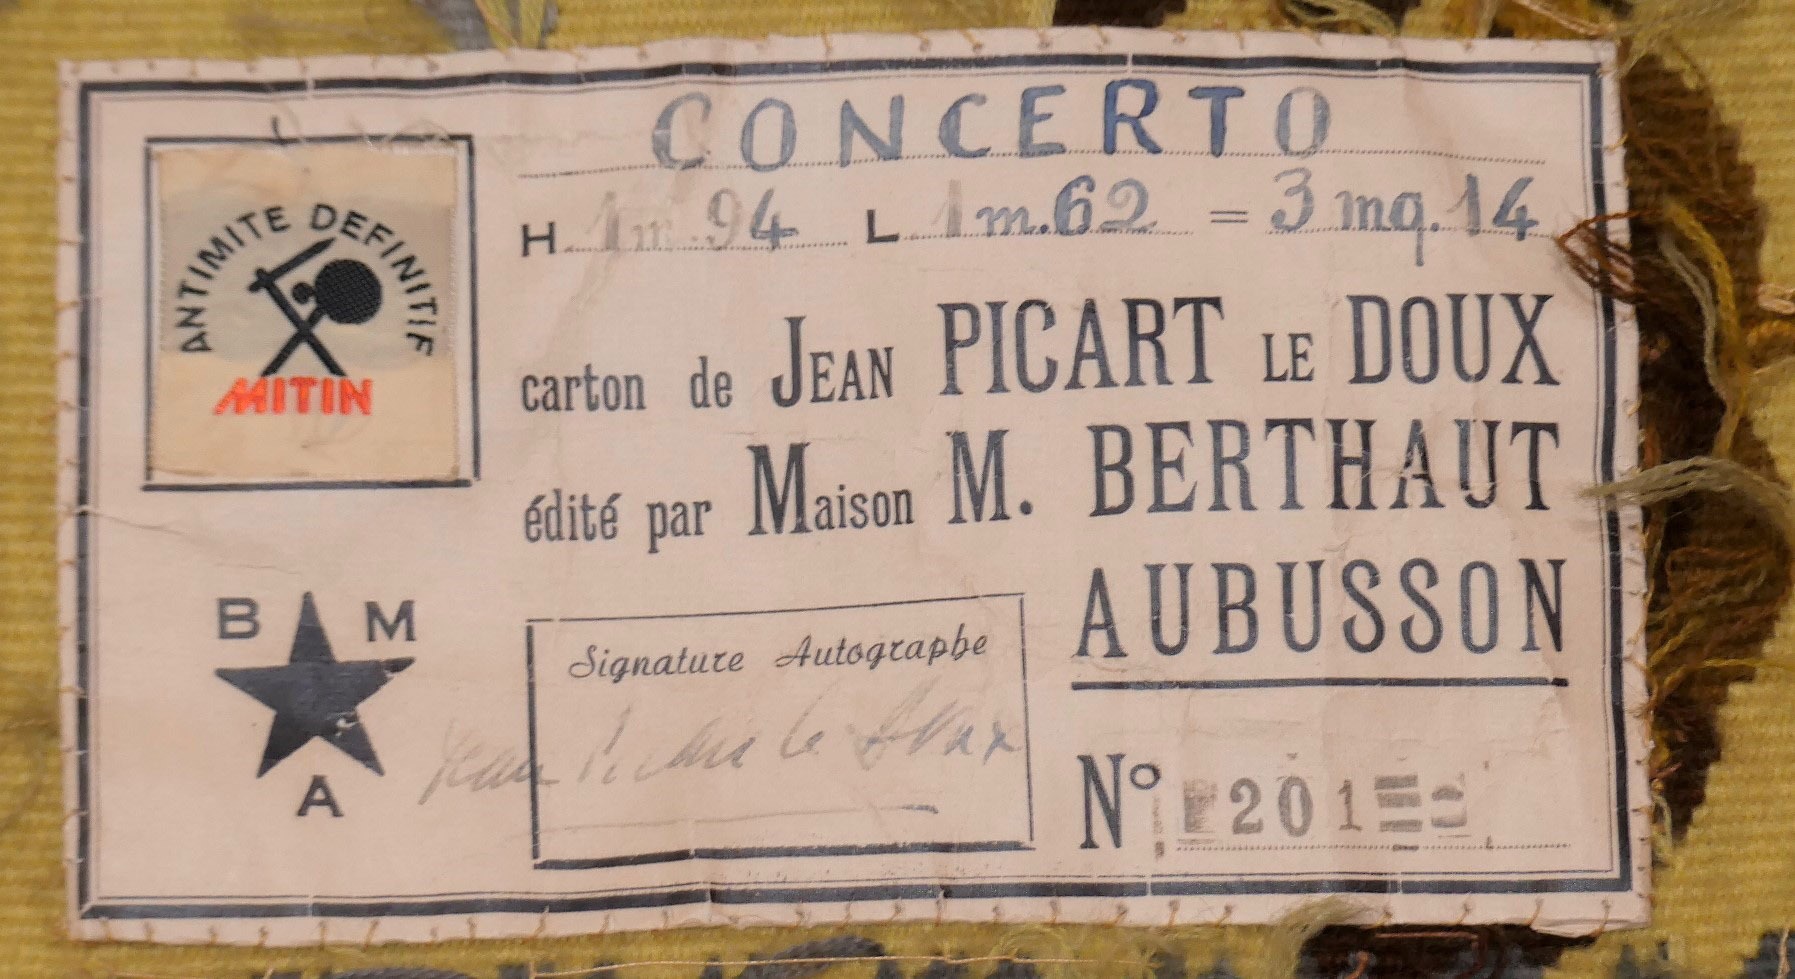 CONCERTO
H. 1m.94 L. 1m.62 = 3mq.14
ANTIMITE DEFINITIF
MITIN
carton de JEAN PICART LE DOUX
édité par Maison M. BERTHAUT
AUBUSSON
B M
A
Signature Autographe
Jean Picart le Doux
N° 201